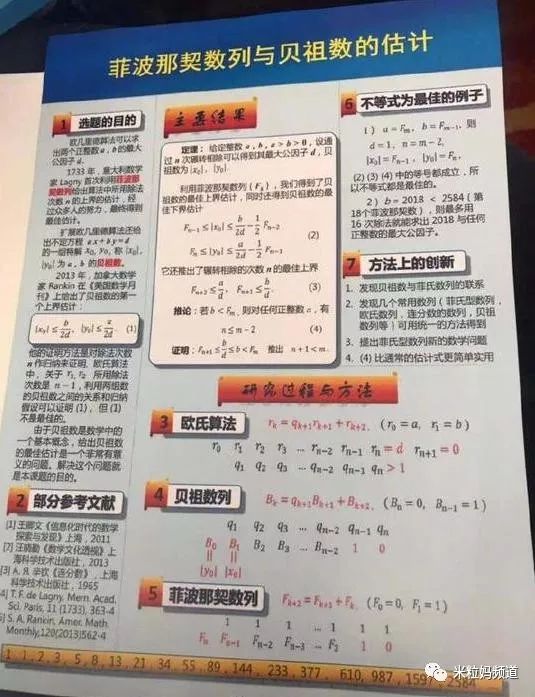 菲波那契数列与贝祖数的估计
1 选题的目的
欧几里德算法可以求
出两个正整数 a, b 的最大
公因子 d.
1733 年，意大利数学
家 Lagny 首次利用菲波那
契数列给出算法中所用除法
次数 n 的上界的估计，经
过众多人的努力，最终得到
最佳估计。
扩展欧几里德算法还给
出不定方程 ax+by=d
的一组特解 x₀, y₀, 称 |x₀|,
|y₀| 为 a, b 的贝祖数。
2013 年，加拿大数学
家 Rankin 在《美国数学月
刊》上给出了贝祖数的第一
个上界估计：
|x₀| ≤ b/2d, |y₀| ≤ a/2d. (1)
他的证明方法是对除法次数
n 作归纳来证明. 欧氏算法
中，关于 r₁, r₂ 所用除法
次数是 n − 1，利用两组数
的贝祖数之间的关系和归纳
假设可以证明 (1)，但 (1)
不是最佳的。
由于贝祖数是数学中的
一个基本概念，给出贝祖数
的最佳估计是一个非常有意
义的问题。解决这个问题就
是本课题的目的。
2 部分参考文献
[1] 王卿文《信息化时代的数学
探索与发现》上海，2011
[2] 汪晓勤《数学文化透视》上
海科学技术出版社，2013
[3] A. Я. 辛钦《连分数》, 上海
科学技术出版社，1965
[4] T. F. de Lagny, Mem. Acad.
Sci. Paris, 11 (1733), 363-4
[5] S. A. Rankin, Amer. Math.
Monthly,120(2013)562-4
主要结果
定理： 给定整数 a, b, a > b > 0，设通
过 n 次辗转相除可以得到其最大公因子 d，贝
祖数为 |x₀|, |y₀|.
利用菲波那契数列 {Fₖ}，我们得到了贝
祖数的最佳上界估计，同时还得到贝祖数的最
佳下界估计
Fₙ₋₁ ≤ |x₀| ≤ b/2d − 1/2 Fₙ₋₂
(2)
Fₙ ≤ |y₀| ≤ a/2d − 1/2 Fₙ₋₁
它还推出了辗转相除的次数 n 的最佳上界
Fₙ₊₂ ≤ a/d, Fₙ₊₁ ≤ b/d. (3)
推论：若 b < Fₘ, 则对任何正整数 a，有
n ≤ m − 2 (4)
证明：Fₙ₊₁ ≤ b/d ≤ b < Fₘ 推出 n + 1 < m.
6 不等式为最佳的例子
1) a = Fₘ, b = Fₘ₋₁, 则
d = 1, n = m − 2,
|x₀| = Fₙ₋₁, |y₀| = Fₙ.
(2) (3) (4) 中的等号都成立，所
以不等式都是最佳的。
2) b = 2018 < 2584 (第
18个菲波那契数)，则最多用
16 次除法就能求出 2018 与任何
正整数的最大公因子。
7 方法上的创新
1. 发现贝祖数与菲氏数列的联系
2. 发现几个常用数列（菲氏型数列，
欧氏数列，连分数的数列，贝祖
数列等）可用统一的方法得到
3. 提出菲氏型数列新的数学问题
4. (4) 比通常的估计式更简单实用
研究过程与方法
3 欧氏算法 rₖ = qₖ₊₁rₖ₊₁ + rₖ₊₂, (r₀ = a, r₁ = b)
r₀ r₁ r₂ r₃ … rₙ₋₂ rₙ₋₁ rₙ = d rₙ₊₁ = 0
q₁ q₂ q₃ … qₙ₋₂ qₙ₋₁ qₙ > 1
4 贝祖数列 Bₖ = qₖ₊₁Bₖ₊₁ + Bₖ₊₂, (Bₙ = 0, Bₙ₋₁ = 1)
q₁ q₂ q₃ … qₙ₋₂ qₙ₋₁ qₙ
B₀ B₁ B₂ B₃ … Bₙ₋₂ 1 0
|| ||
|y₀| |x₀|
5 菲波那契数列 Fₖ₊₂ = Fₖ₊₁ + Fₖ, (F₀ = 0, F₁ = 1)
1 1 1 … 1 1 1
Fₙ Fₙ₋₁ Fₙ₋₂ Fₙ₋₃ … F₂ 1 0
1, 1, 2, 3, 5, 8, 13, 21, 34, 55, 89, 144, 233, 377, 610, 987, 1597, 2584
米粒妈频道